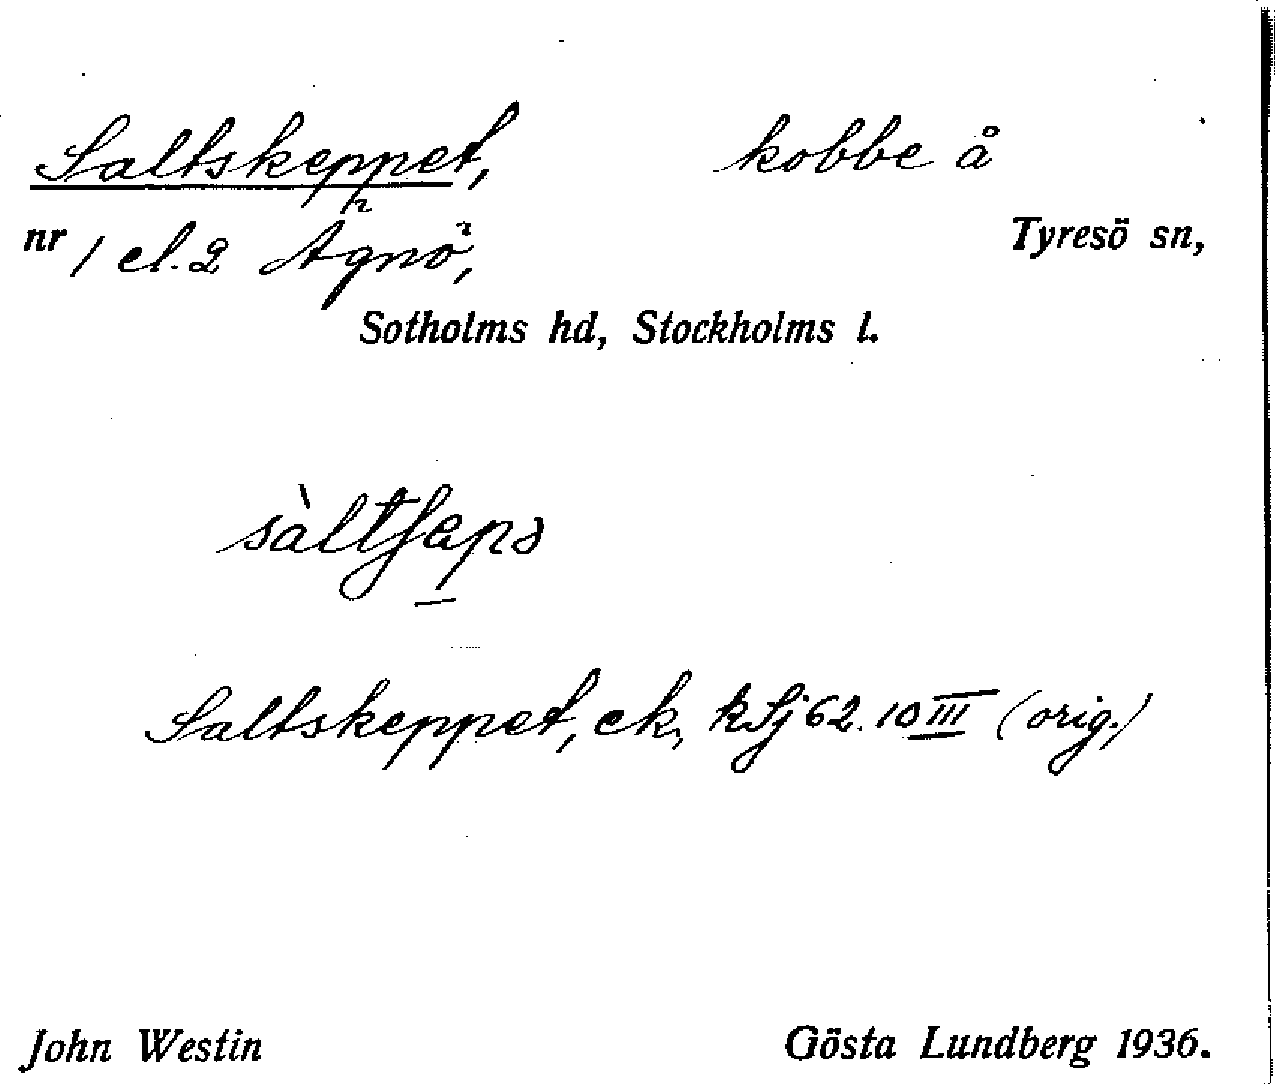 Saltskeppet, kobbe å
nr 1 el. 2 Ägnö, Tyresö sn,
Sotholms hd, Stockholms l.
Saltskeppet, ek, kSj 62. 10 III (orig.)
John Westin Gösta Lundberg 1936.